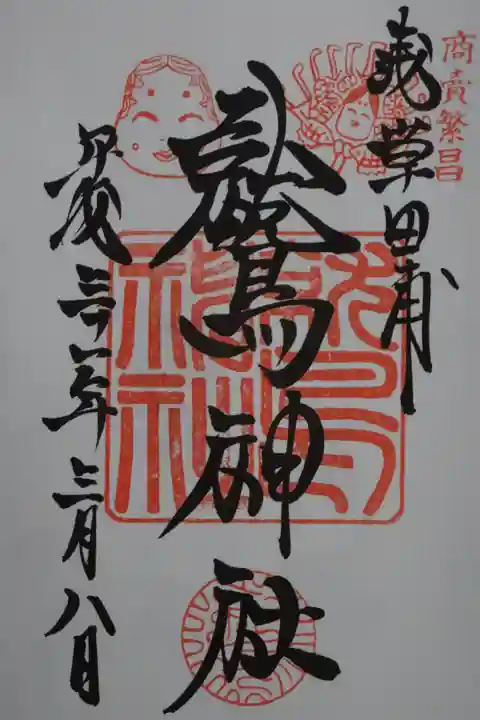 商賣繁昌
浅草田甫
鷲神社
平成三十一年三月八日